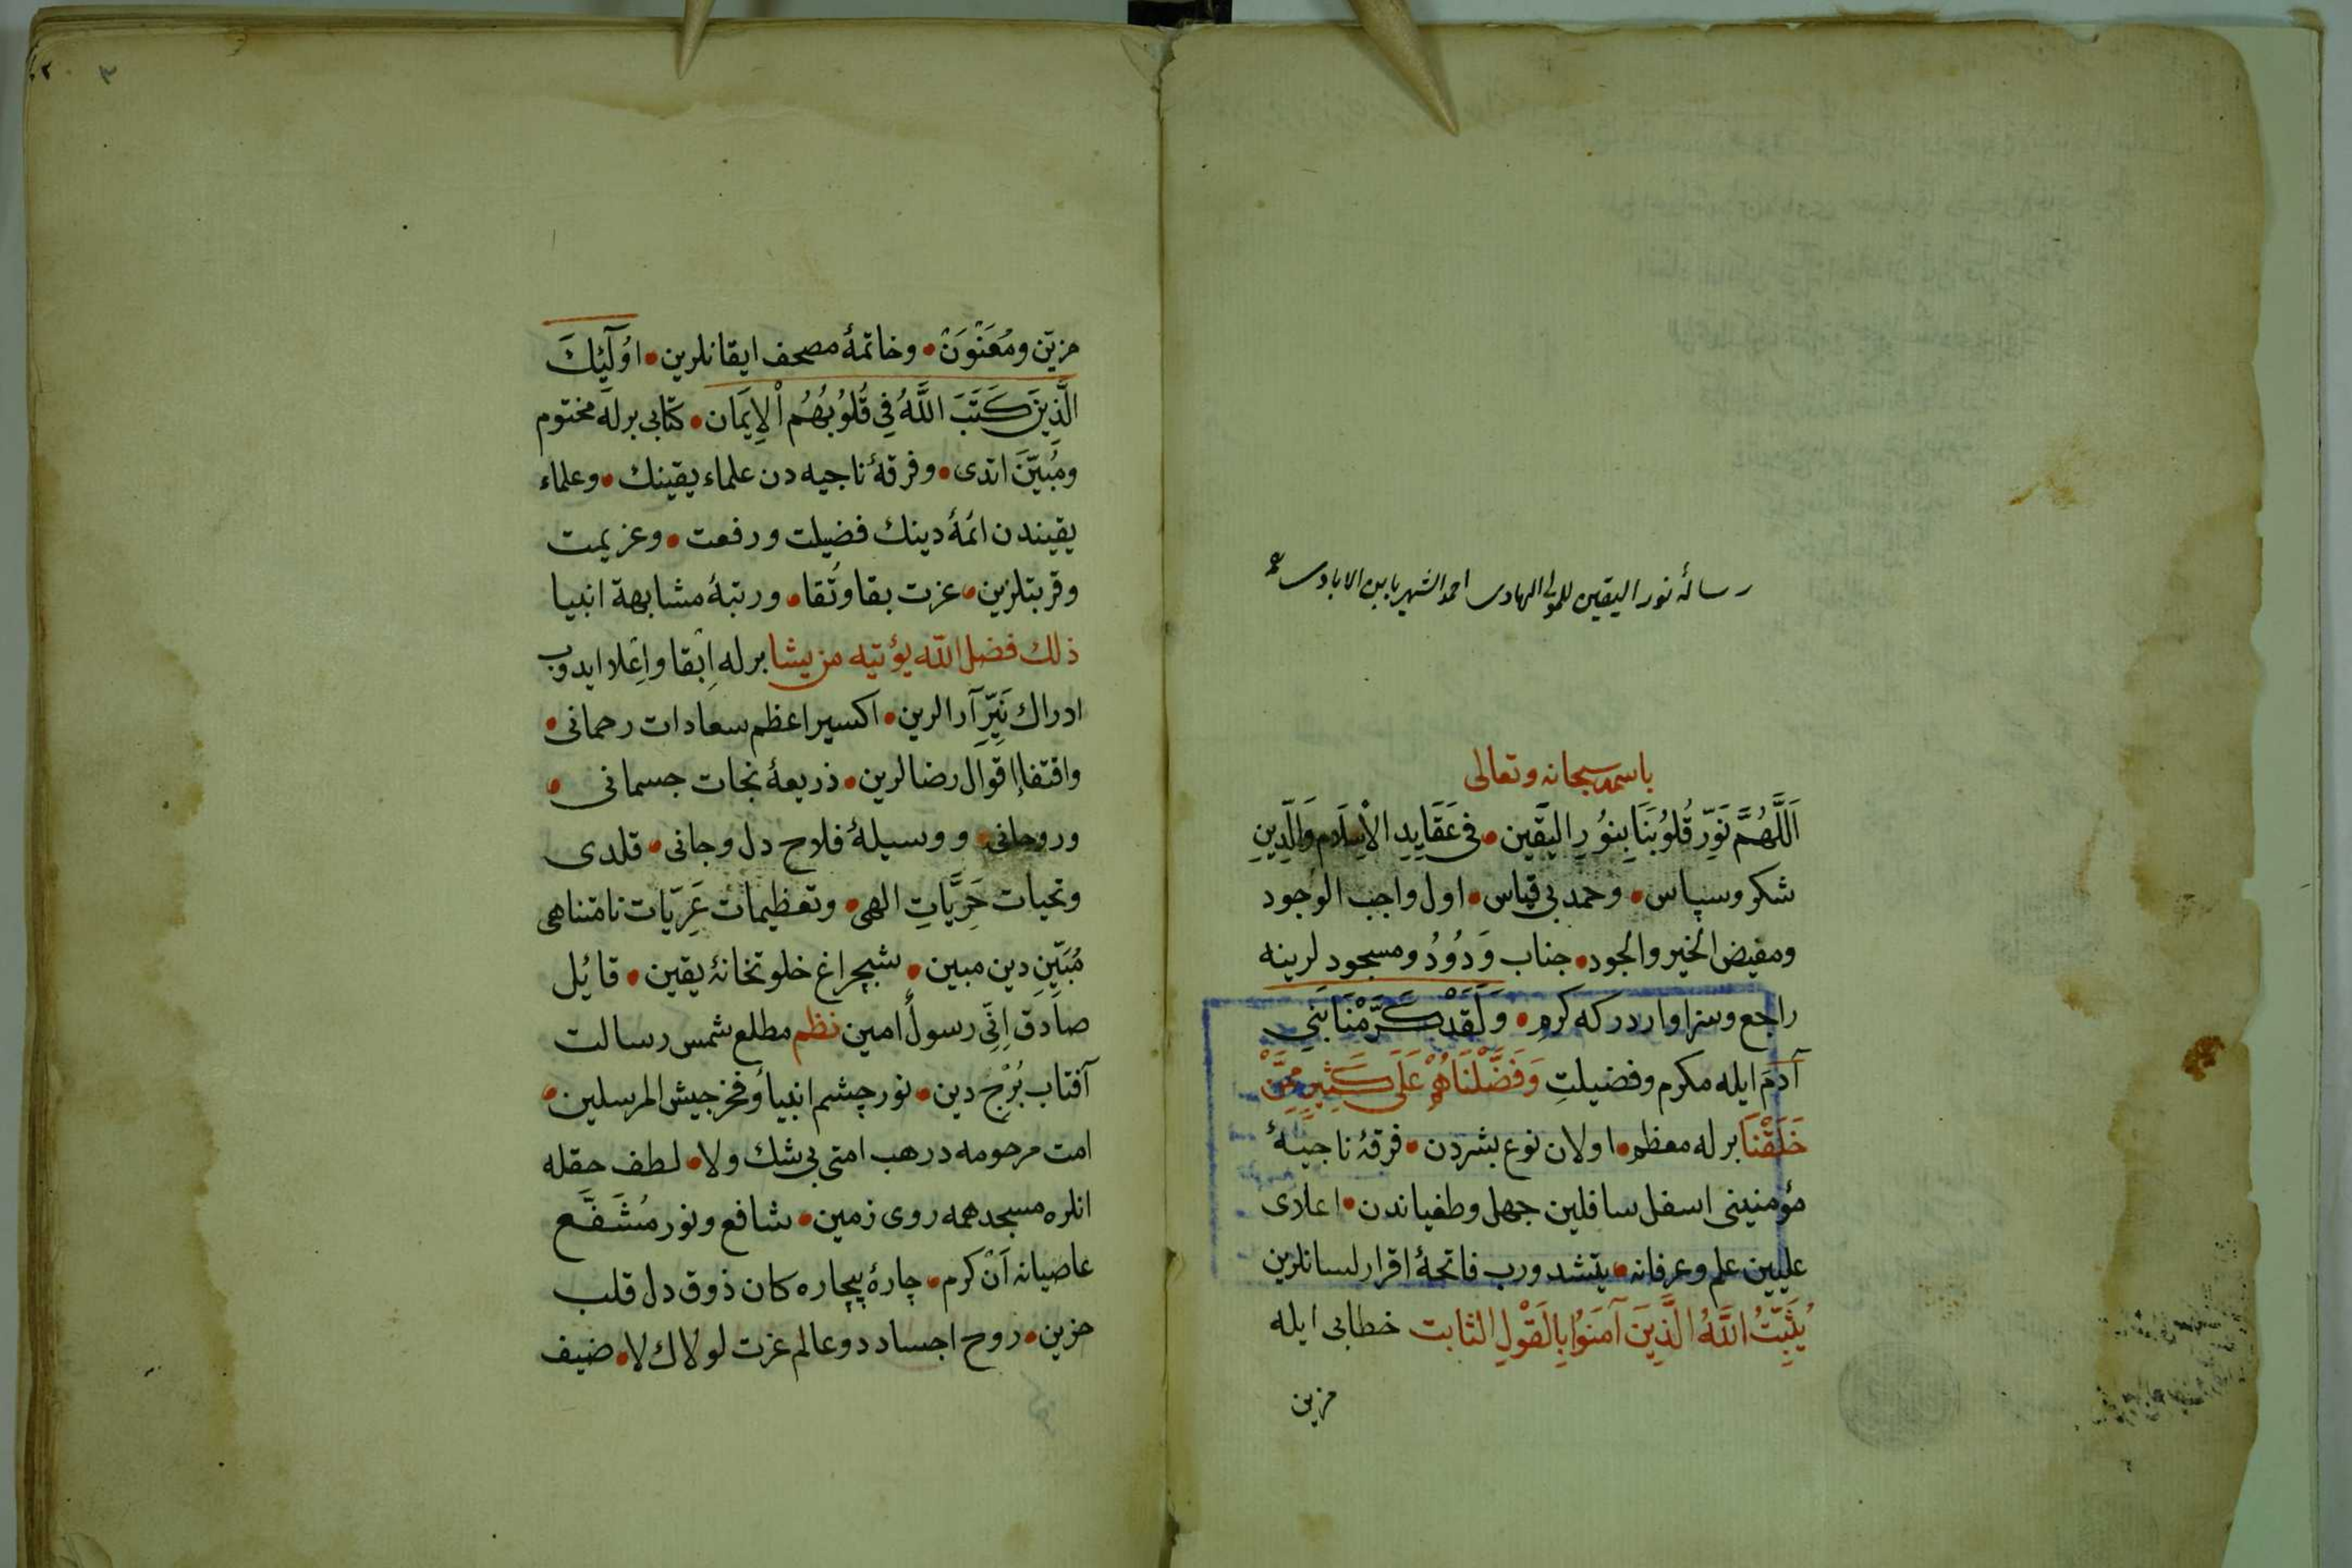 رسالهٔ نور اليقين للمولى الهادى احمد الشهير بابن الابادى
باسمه سبحانه وتعالى
اَللَّهُمَّ نَوِّر قُلُوبَنَا بِنُورِ اليَقين • فى عَقَايِدِ الْاِسْلَام وَالدِّينِ
شكر وسپاس • وحمد بى قياس • اول واجب الوجود
ومفيض الخير والجود • جناب وَدُودُ ومسجود لرينه
راجع وسزاوار در كه كرمِ • وَلَقَدْ كَرَّمْنَا بَنِي
آدَمَ ايله مكرم وفضيلتِ وَفَضَّلْنَاهُمْ عَلَى كَثِيرٍ مِمَّنْ
خَلَقْنَا برله معظم • اولان نوع بشردن • فرقهٔ ناجيهٔ
مؤمنينى اسفل سافلين جهل وطغياندن • اعلاى
عليين علم وعرفانه • يتشدورب فاتحهٔ اقرار لسانلرين
يُثَبِّتُ اللَّهُ الَّذِينَ آمَنُوا بِالْقَوْلِ الثابت خطابى ايله
مزين
٣
مزين ومُعَنْوَنْ • وخاتمهٔ مصحف ايقانلرين • اُولَٓئِكَ
الَّذِينَ كَتَبَ اللَّهُ فِى قُلُوبُهُم الْاِيمَان • كتابى برله مختوم
ومُبَيَّنَ اتدى • وفرقهٔ ناجيه دن علماء يقينك • وعلماء
يقيندن ائمهٔ دينك فضيلت ورفعت • وعزيمت
وقربتلرين • عزت بقا وتُقا • ورتبهٔ مشابهة انبيا
ذلك فضل الله يؤتيه من يشا برله اِبقا واِعْلا ايدوب
ادراك نَيِّرِ آرالرين • اكسير اعظم سعادات رحمانى •
واقتفاء اقوال رضالرين • ذريعهٔ نجات جسمانى •
وروحانى • ووسيلهٔ فلاح دل وجانى • قلدى
وتحيات حَرِيَّاتِ الهى • وتعظيمات عَرِيّات نامتناهى
مُبَيِّنِ دين مبين • شبچراغ خلوتخانهٔ يقين • قائل
صادق اِنِّى رسولٌ امين نظم مطلع شمس رسالت
آفتاب بُرْج دين • نور چشم انبيا وفخر جيش المرسلين •
امت مرحومه در هب امتى بى شك ولا • لطف حقله
انلره مسجد همه روى زمين • شافع ونور مُشَفَّع
عاصيانه اَنْ كرم • چارهٔ بيچاره كان ذوق دل قلب
حزين • روح اجساد دو عالم عزت لولاك لا • ضيف